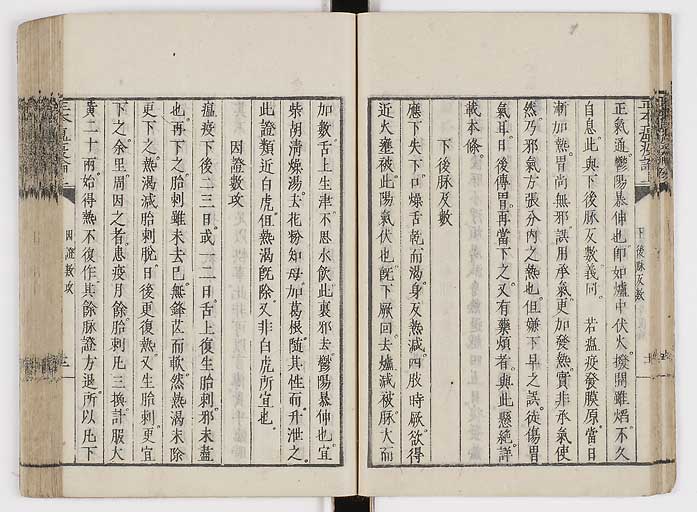 正氣通鬱陽暴伸也卽如爐中伏火撥開雖熖不久
自息此與下後脉反數義同　若瘟疫發膜原當日
漸加熱胃尚無邪誤用承氣更加發熱實非承氣使
然乃邪氣方張分內之熱也但嫌下早之誤徒傷胃
氣耳日後傳胃再當下之又有藥煩者與此懸絶詳
載本條
下後脉反數
應下失下口燥舌乾而渴身反熱減四肢時厥欲得
近火壅被此陽氣伏也旣下厥回去爐減被脉大而
加數舌上生津不思水飮此裏邪去鬱陽暴伸也宜
柴胡清燥湯去花粉知母加葛根隨其性而升泄之
此證類近白虎但熱渴旣除又非白虎所宜也
因證數攻
瘟疫下後二三日或一二日舌上復生胎刺邪未盡
也再下之胎刺雖未去巳無鋒芒而軟然熱渴未除
更下之熱渴減胎刺脫日後更復熱又生胎刺更宜
下之余里周因之者患疫月餘胎刺凡三換計服大
黃二十兩始得熱不復作其餘脉證方退所以凡下
下後脉反數
因證數攻